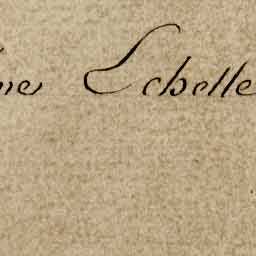 ne Echelle